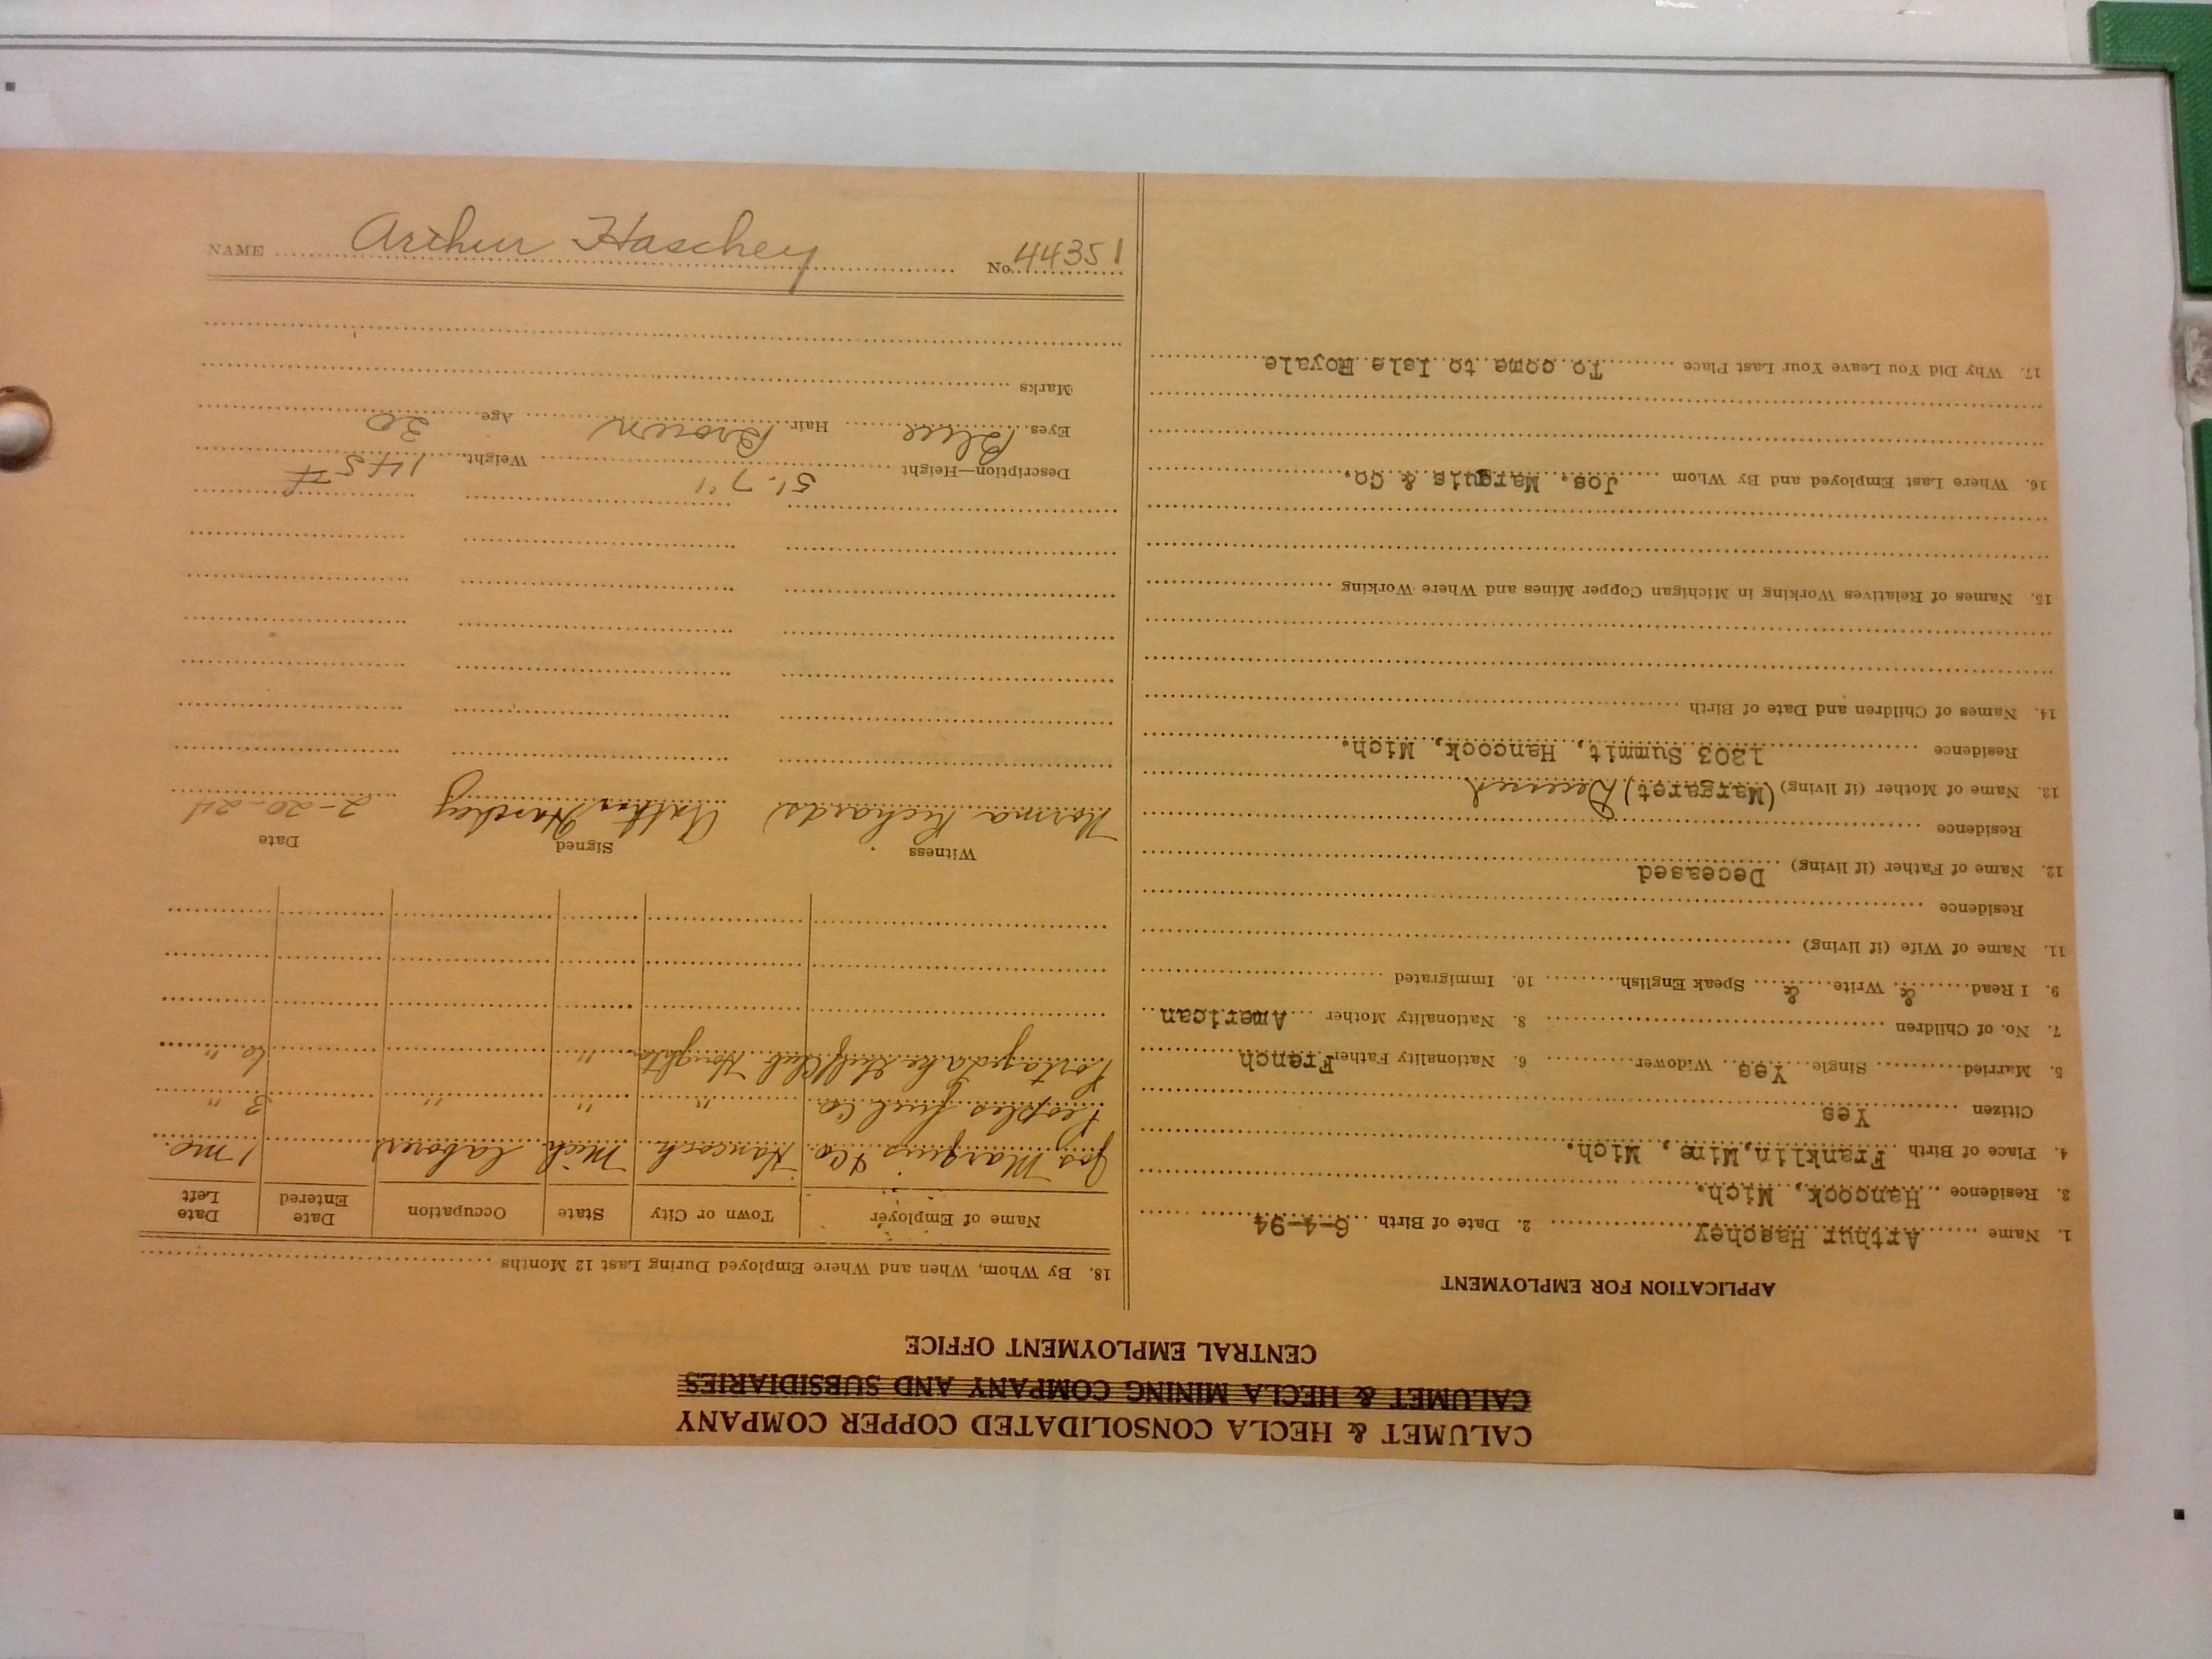 CALUMET & HECLA CONSOLIDATED COPPER COMPANY
CALUMET & HECLA MINING COMPANY AND SUBSIDIARIES
CENTRAL EMPLOYMENT OFFICE
APPLICATION FOR EMPLOYMENT
1. Name Arthur Haschey 2. Date of Birth 6-4-94
3. Residence Hancock, Mich.
4. Place of Birth Franklin, Mine, Mich.
Citizen Yes
5. Married Single Yes Widower 6. Nationality Father French
7. No. of Children 8. Nationality Mother American
9. I Read & Write & Speak English 10. Immigrated
11. Name of Wife (if living)
Residence
12. Name of Father (if living) Deceased
Residence
13. Name of Mother (if living) (Margaret) Deceased
Residence 1303 Summit, Hancock, Mich.
14. Names of Children and Date of Birth
15. Names of Relatives Working in Michigan Copper Mines and Where Working
16. Where Last Employed and By Whom Jos. Marquis & Co.
17. Why Did You Leave Your Last Place To come to Isle Royale
18. By Whom, When and Where Employed During Last 12 Months
Name of Employer Town or City State Occupation Date Entered Date Left
Jos Marquis & Co. Hancock Mich Laborer 1 mo.
Peoples Fuel Co. " " " 3 "
Portage Lake Golf Club Houghton " 6 "
Witness Signed Date
Norma Richards Arthur Haschey 2-20-24
Description—Height 5'-7" Weight 145 #
Eyes Blue Hair Brown Age 30
Marks
NAME Arthur Haschey No. 44351